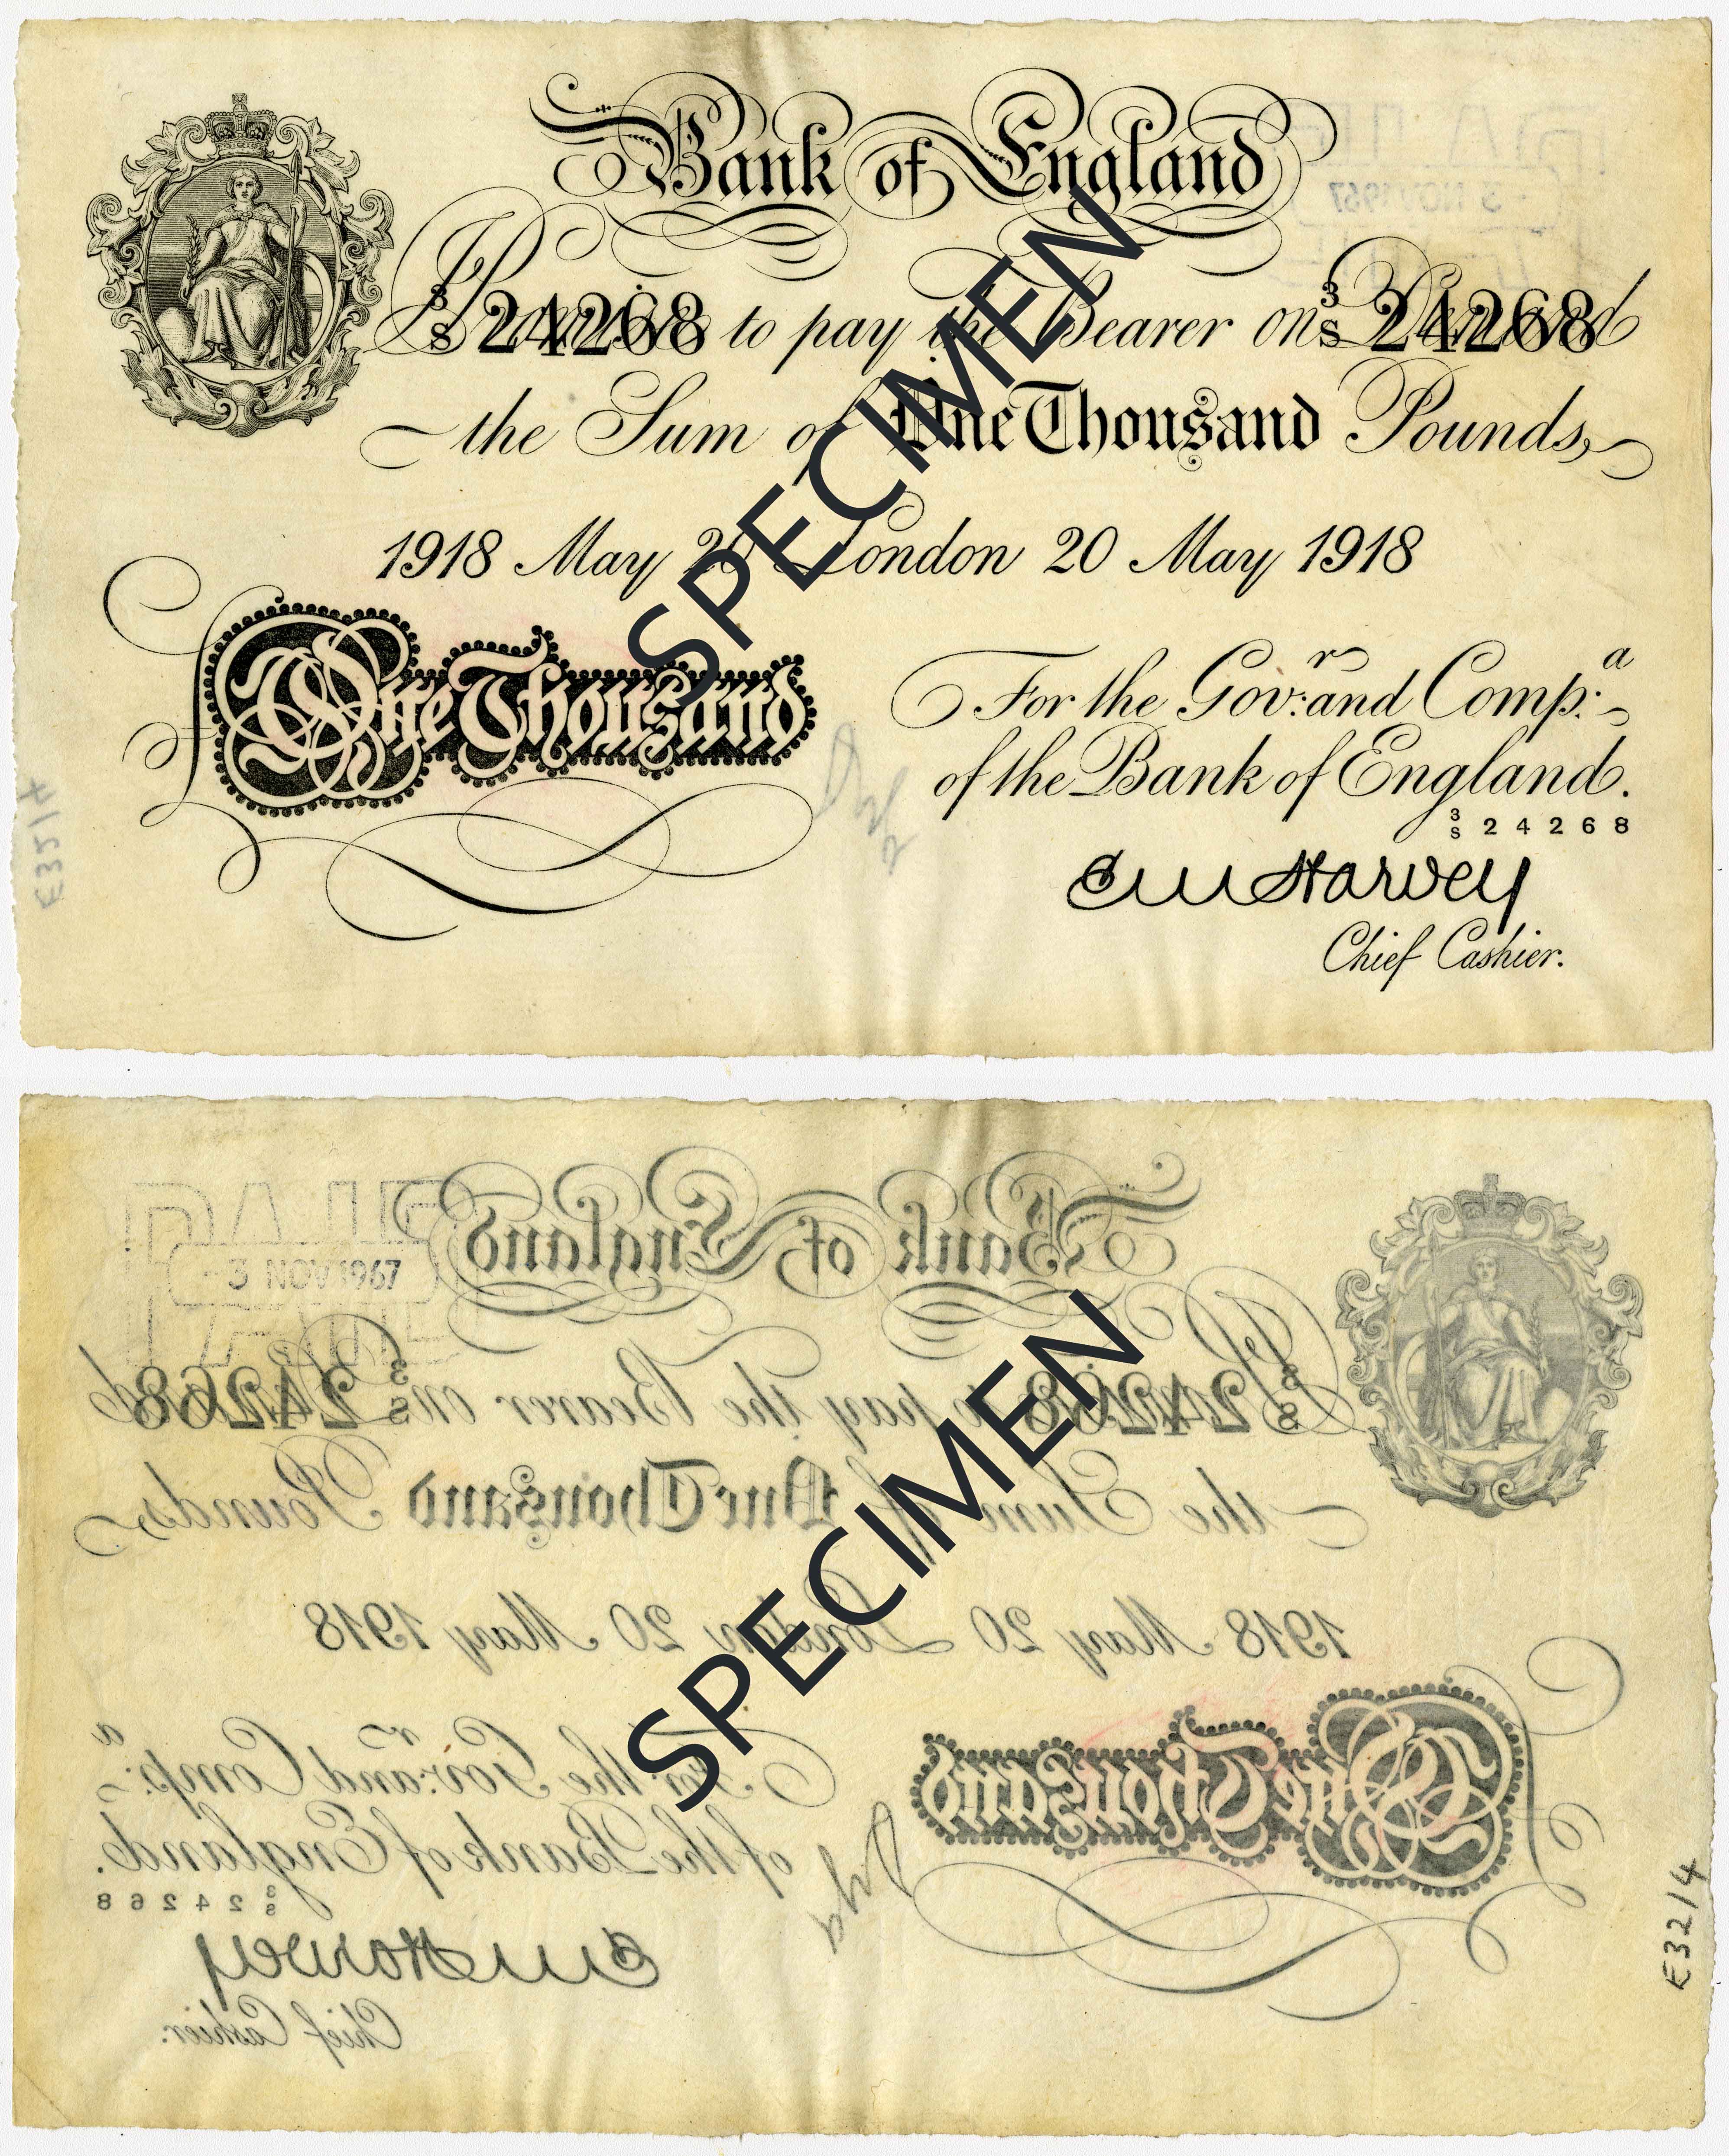 Bank of England
3/S 24268 Promise to pay the Bearer on 3/S 24268 Demand
the Sum of One Thousand Pounds
1918 May 20 London 20 May 1918
One Thousand
For the Gov:r and Comp:a
of the Bank of England.
3/S 24268
E M Harvey
Chief Cashier.
E32/4
SPECIMEN
Bank of England
- 3 NOV 1967
3/S 24268 Promise to pay the Bearer on 3/S 24268 Demand
the Sum of One Thousand Pounds
1918 May 20 London 20 May 1918
One Thousand
For the Gov:r and Comp:a
of the Bank of England.
3/S 24268
E M Harvey
Chief Cashier.
E32/4
SPECIMEN